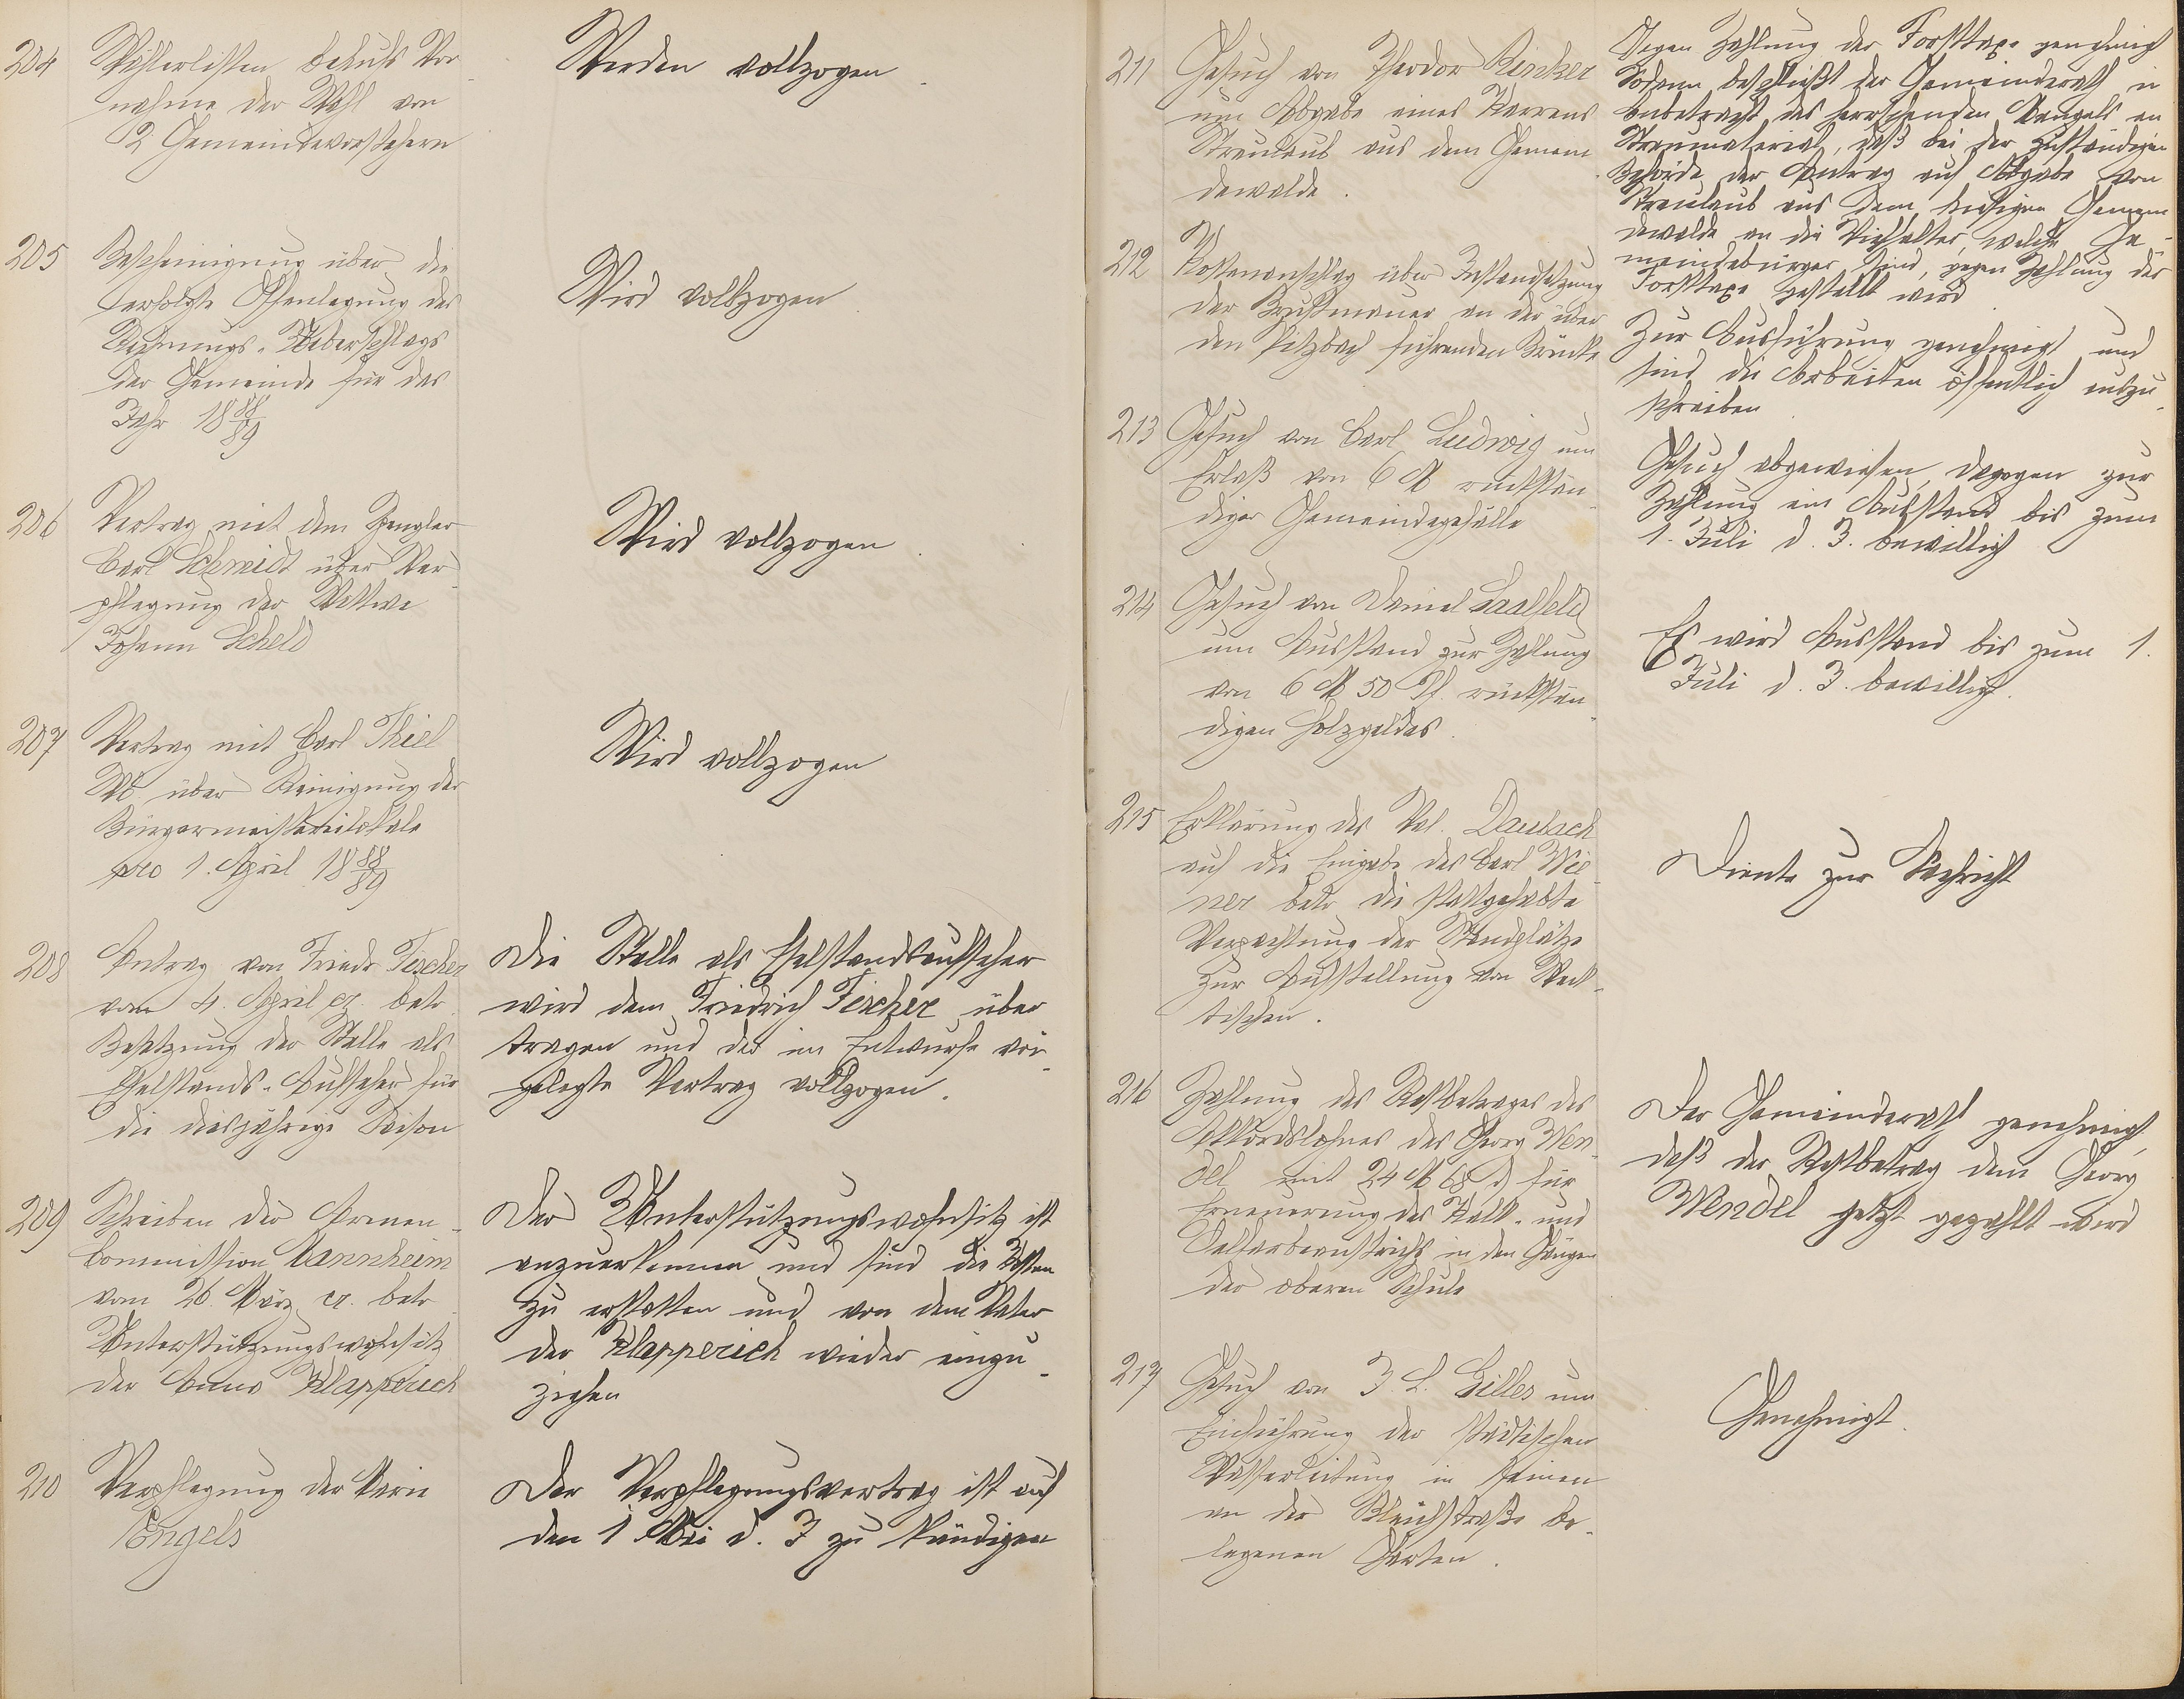 204
Wählerlisten behufs Vor-
nahme der Wahl von
2 Gemeindevorstehern
Werden vollzogen.
205
Bescheinigung über die
erfolgte Offenlegung des
Rechnungs-Ueberschlags
der Gemeinde für das
Jahr 1888/89
Wird vollzogen
206
Vertrag mit dem Spengler
Carl Schmidt über Ver-
pflegung der Wittwe
Johann Scheld
Wird vollzogen.
207
Vertrag mit Carl Thiel
We über Reinigung der
Bürgermeistereilokale
pro 1. April 1888/89
Wird vollzogen
208
Antrag von Friedr Fischer
vom 4. April cr. betr.
Besetzung der Stelle als
Eselstands-Aufseher für
die diesjährige Saison
Die Stelle als Eselstandsaufseher
wird dem Friedrich Fischer über
tragen und der im Entwurfe vor-
gelegte Vertrag vollzogen.
209
Schreiben der Armen-
Commission Mannheim
vom 26. März cr. betr.
Unterstützungswohnsitz
der Anna Klapperich
Der Unterstützungswohnsitz ist
anzuerkennen und sind die Kosten
zu erstatten und von dem Vater
der Klapperich wieder einzu-
ziehen
210
Verpflegung der Marie
Engels
Der Verpflegungsvertrag ist auf
den 1 Mai d. J zu kündigen
211
Gesuch von Theodor Rinker
um Abgabe eines Karrens
Streulaub aus dem Gemein
dewalde.
Gegen Zahlung der Forsttaxe genehmigt
Sodann beschließt der Gemeinderath in
Anbetracht des herrschenden Mangels an
Streumaterial, daß bei der zuständigen
Behörde der Antrag auf Abgabe von
Streulaub aus dem hiesigen Gemein
dewalde an die Viehhalter, welche Ge-
meindebürger sind, gegen Zahlung der
Forsttaxe gestellt wird
212
Kostenanschlag über Instandsetzung
der Brustmauer an der über
den Pitzbach führenden Brücke
Zur Ausführung genehmigt und
sind die Arbeiten öffentlich auszu-
schreiben
213
Gesuch von Carl Ludwig um
Erlaß von 6 M rückstän-
diger Gemeindegefälle
Gesuch abgewiesen, dagegen zur
Zahlung ein Ausstand bis zum
1. Juli d. J. bewilligt
214
Gesuch von Daniel Saalfeld
um Ausstand zur Zahlung
von 6 M 50 Pf. rückstän-
digen Holzgeldes.
Es wird Ausstand bis zum 1.
Juli d. J. bewilligt.
215
Erklärung des Val. Daubach
auf die Eingabe des Carl Wie-
ner betr die stattgehabte
Verpachtung der Standplätze
zur Aufstellung von Verk-
tischen.
Diente zur Nachricht
216
Zahlung des Restbetrages des
Akkordslohnes des Georg Wen-
del mit 24 M 68 d für
Erneuerung des Kalk- und
Oelfarbanstrichs in den Gängen
der oberen Schule
Der Gemeinderath genehmigt,
daß der Restbetrag dem Georg
Wendel jetzt gezahlt wird
217
Gesuch von J. L. Gilles um
Einführung der städtischen
Wasserleitung in seinen
an der Bleichstraße be-
legenen Garten.
Genehmigt.